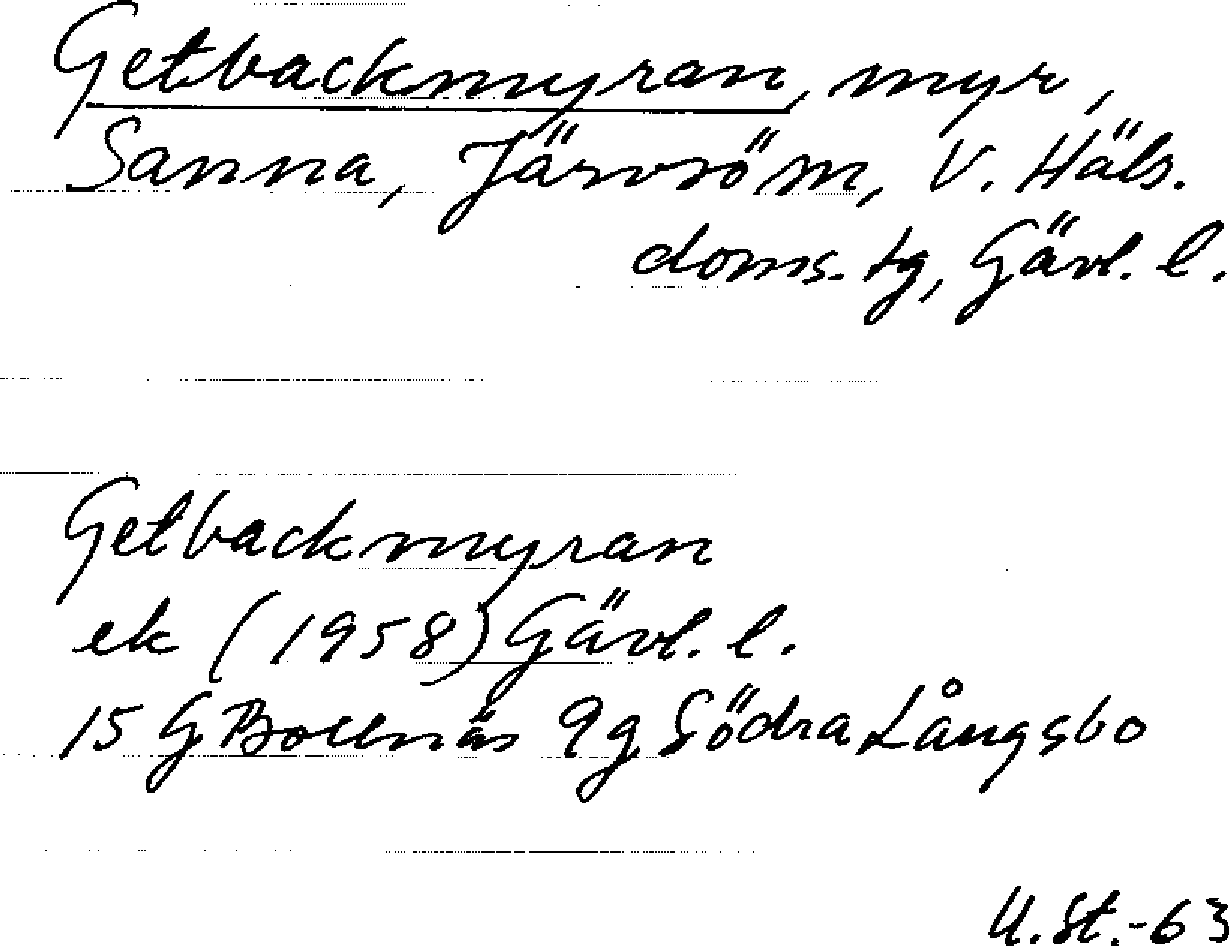 Getbackmyran, myr,
Sanna, Järvsö sn, V. Häls.
doms. tg, Gävl. l.
Getbackmyran
ek (1958) Gävl. l.
15 G Bollnäs 9g Södra Långsbo
U. St. -63